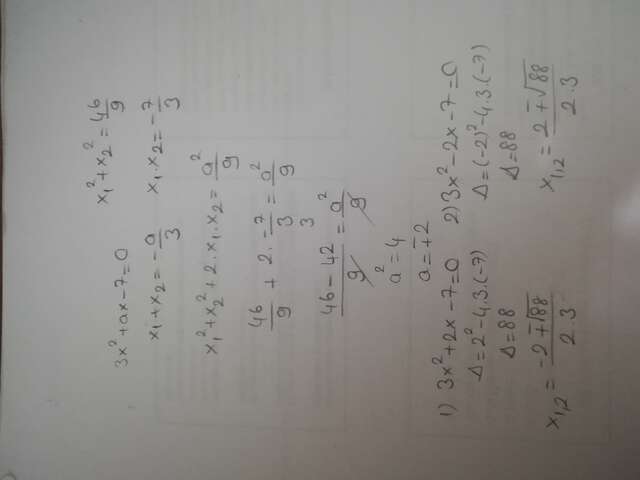 3x² + ax - 7 = 0
x₁² + x₂² = 46/9
x₁ + x₂ = -a/3
x₁ . x₂ = -7/3
x₁² + x₂² + 2 . x₁ . x₂ = a²/9
46/9 + 2 . -7/3 = a²/9
3
46 - 42/9 = a²/9
a² = 4
a = ∓2
1) 3x² + 2x - 7 = 0
Δ = 2² - 4.3.(-7)
Δ = 88
x₁,₂ = -2 ∓ √88/2.3
2) 3x² - 2x - 7 = 0
Δ = (-2)² - 4.3.(-7)
Δ = 88
x₁,₂ = 2 ∓ √88/2.3